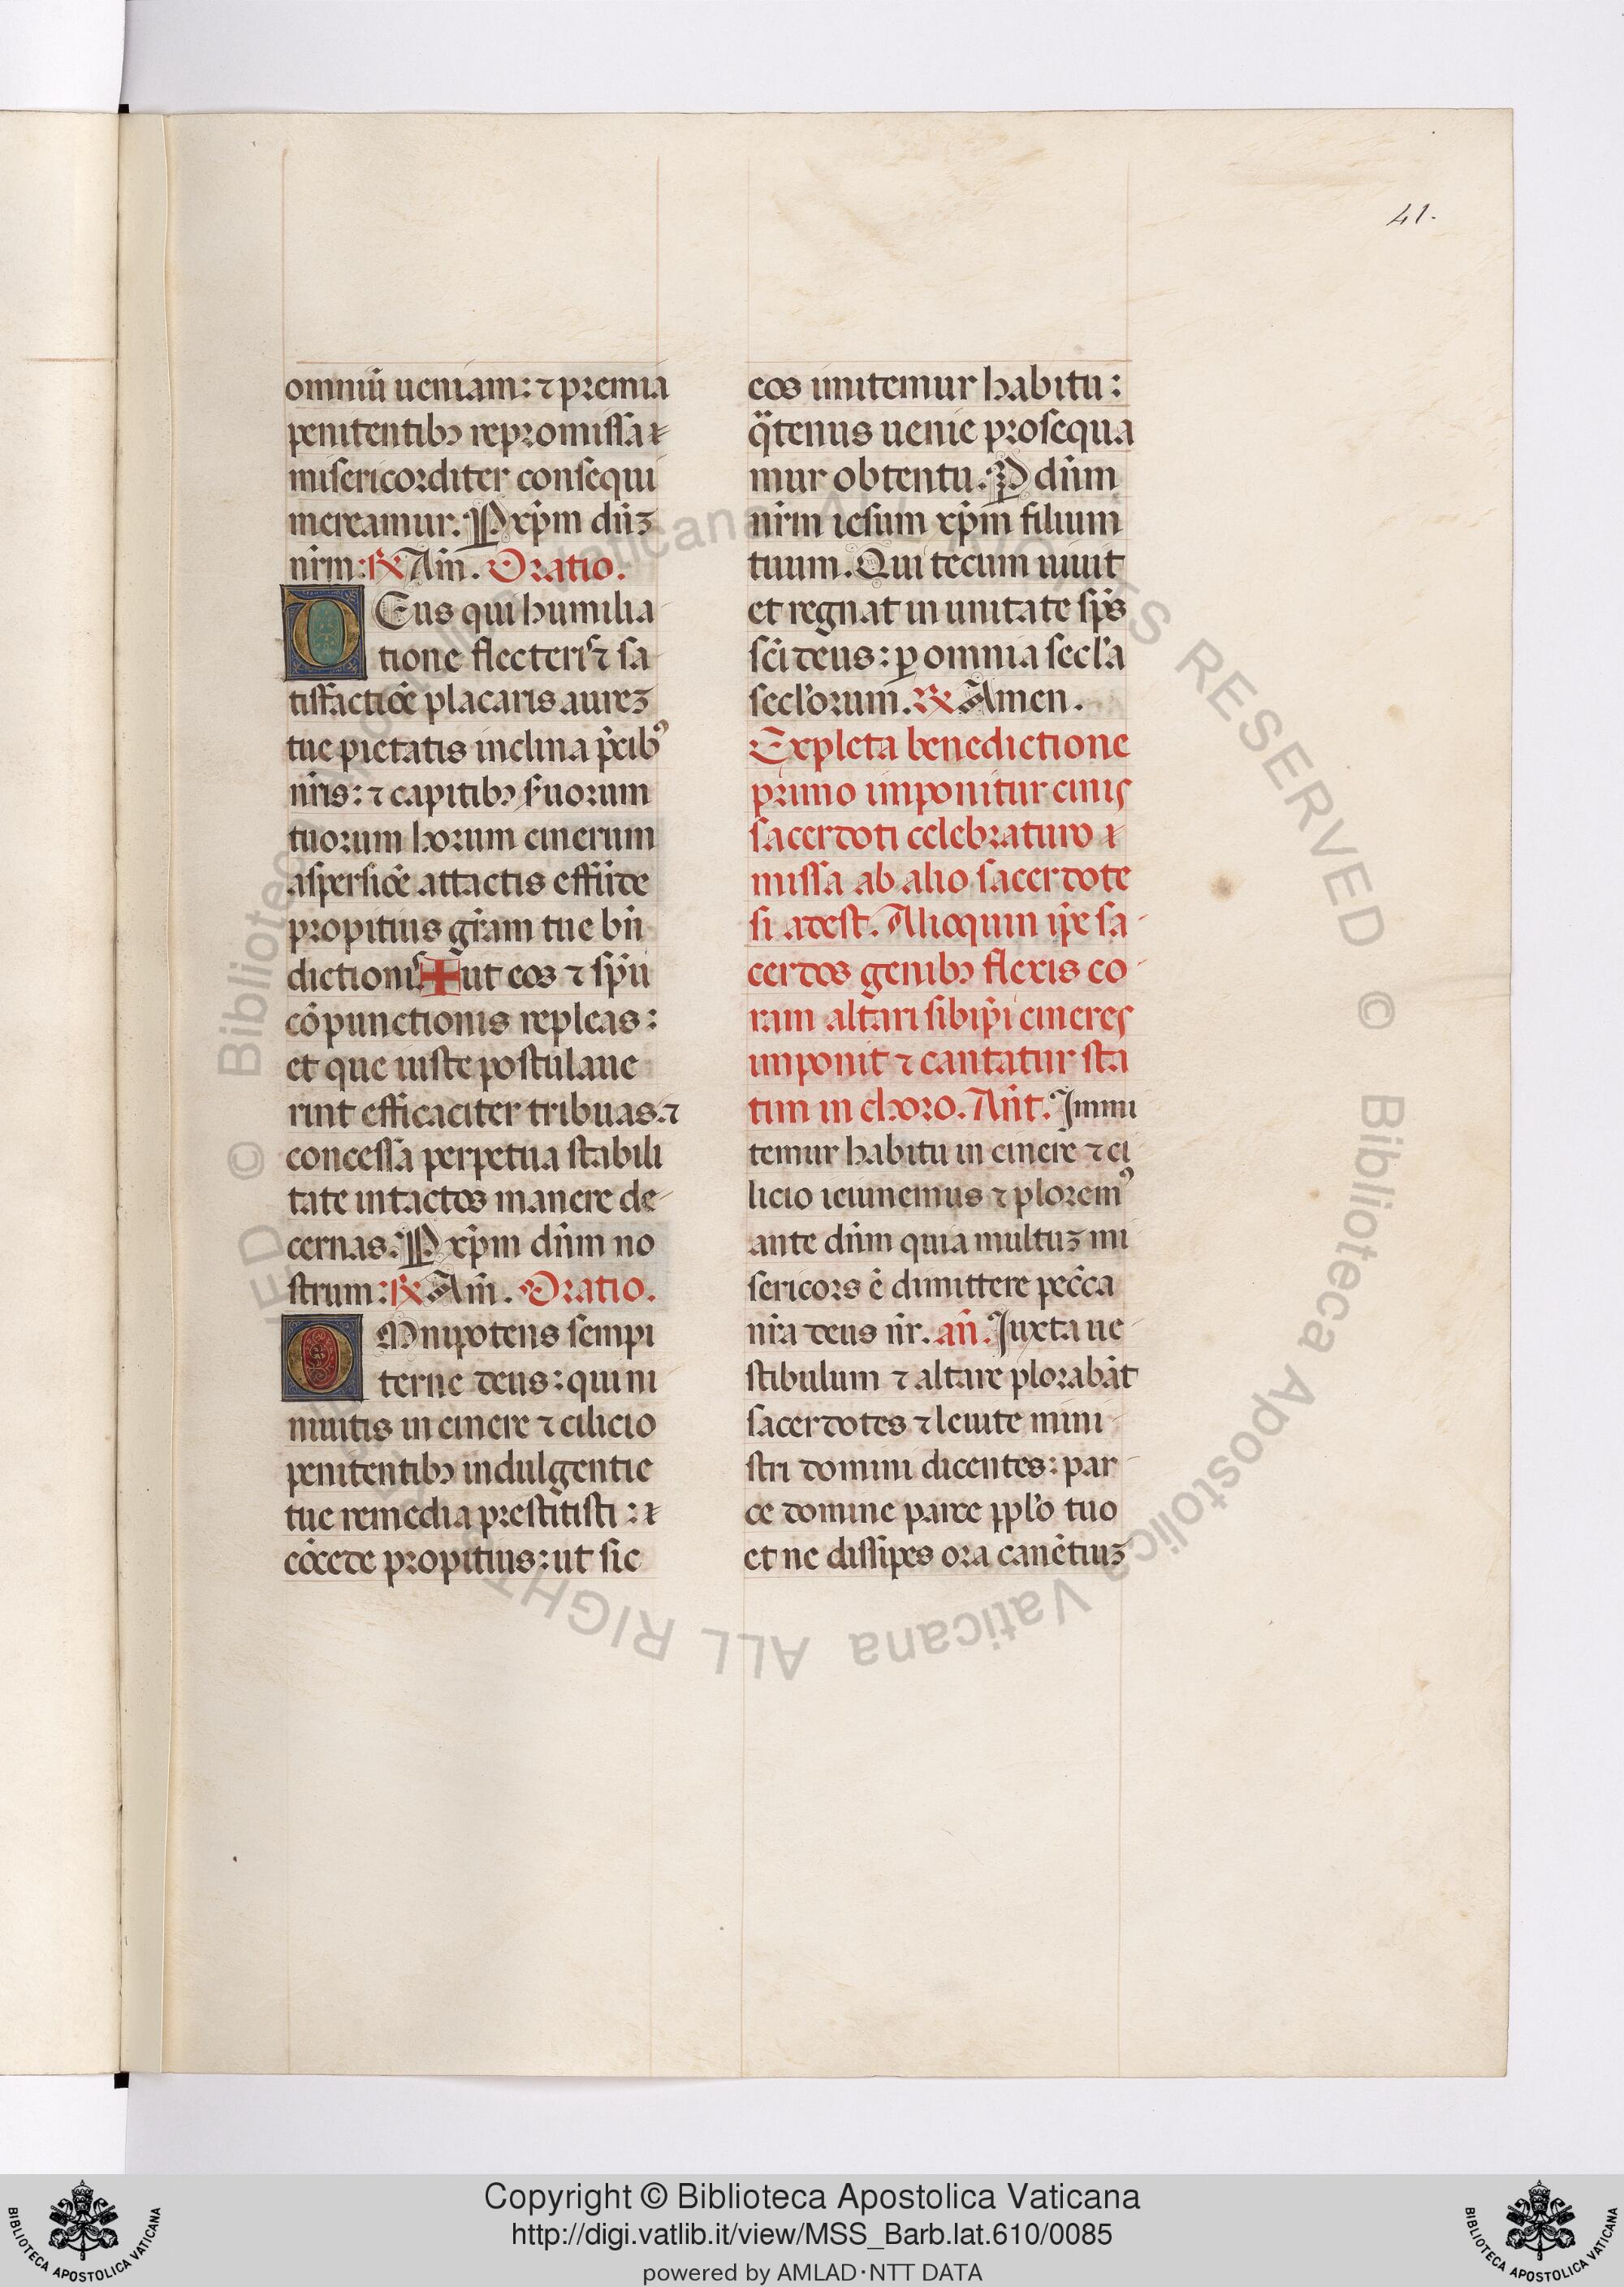 41.
omniũ ueniam: ⁊ premia
penitentibꝫ repromissa ⁊
misericorditer consequi
mereamur. P xp̃m dñꝫ
nr̃m: ℟ Am̃. Oratio.
DEus qui humilia-
tione flecteris ⁊ sa-
tisfactiõe placaris aureꝫ
tue pietatis inclina p̃cibꝰ
nr̃is: ⁊ capitibꝫ suorum
tuorum horum cinerum
aspersiõe attactis effũde
propitius gr̃am tue bñ-
dictionis ✠ ut eos ⁊ sp̃u
cõpunctionis repleas:
et que iuste postulaue-
rint efficaciter tribuas. ⁊
concessa perpetua stabili
tate intactos manere de-
cernas. P xp̃m dñm no
strum: ℟ Am̃. Oratio.
OMnipotens sempi
terne deus: qui ni
niuitis in cinere ⁊ cilicio
penitentibꝫ indulgentie
tue remedia prestitisti: ⁊
cõcede propitius: ut sic
eos imitemur habitu:
q̃tenus uenie prosequa
mur obtentu. P dñm
nr̃m iesum xp̃m filium
tuum. Qui tecum uiuit
et regnat in unitate sp̃s
sc̃i deus: ꝑ omnia secl̃a
secl̃orum. ℟ Amen.
Expleta benedictione
primo imponitur cinis
sacerdoti celebraturo ⁊
missa ab alio sacerdote
si adest. Alioquin ip̃e sa-
cerdos genibꝫ flexis co-
ram altari sibip̃i cineres
imponit ⁊ cantatur sta
tim in choro. Añt. Immu
temur habitu in cinere ⁊ ci
licio ieiunemus ⁊ ploremꝰ
ante dñm quia multuꝫ mi
sericors ẽ dimittere pec̃ca
nr̃a deus nr̃. añ. Juxta ue-
stibulum ⁊ altare plorabãt
sacerdotes ⁊ leuite mini-
stri domini dicentes: par-
ce domine parce ppl̃o tuo
et ne dissipes ora canẽtiuꝫ
© Biblioteca Apostolica Vaticana ALL RIGHTS RESERVED © Biblioteca Apostolica Vaticana ALL RIGHTS RESERVED
BIBLIOTECA APOSTOLICA VATICANA
Copyright © Biblioteca Apostolica Vaticana
http://digi.vatlib.it/view/MSS_Barb.lat.610/0085
powered by AMLAD·NTT DATA
BIBLIOTECA APOSTOLICA VATICANA